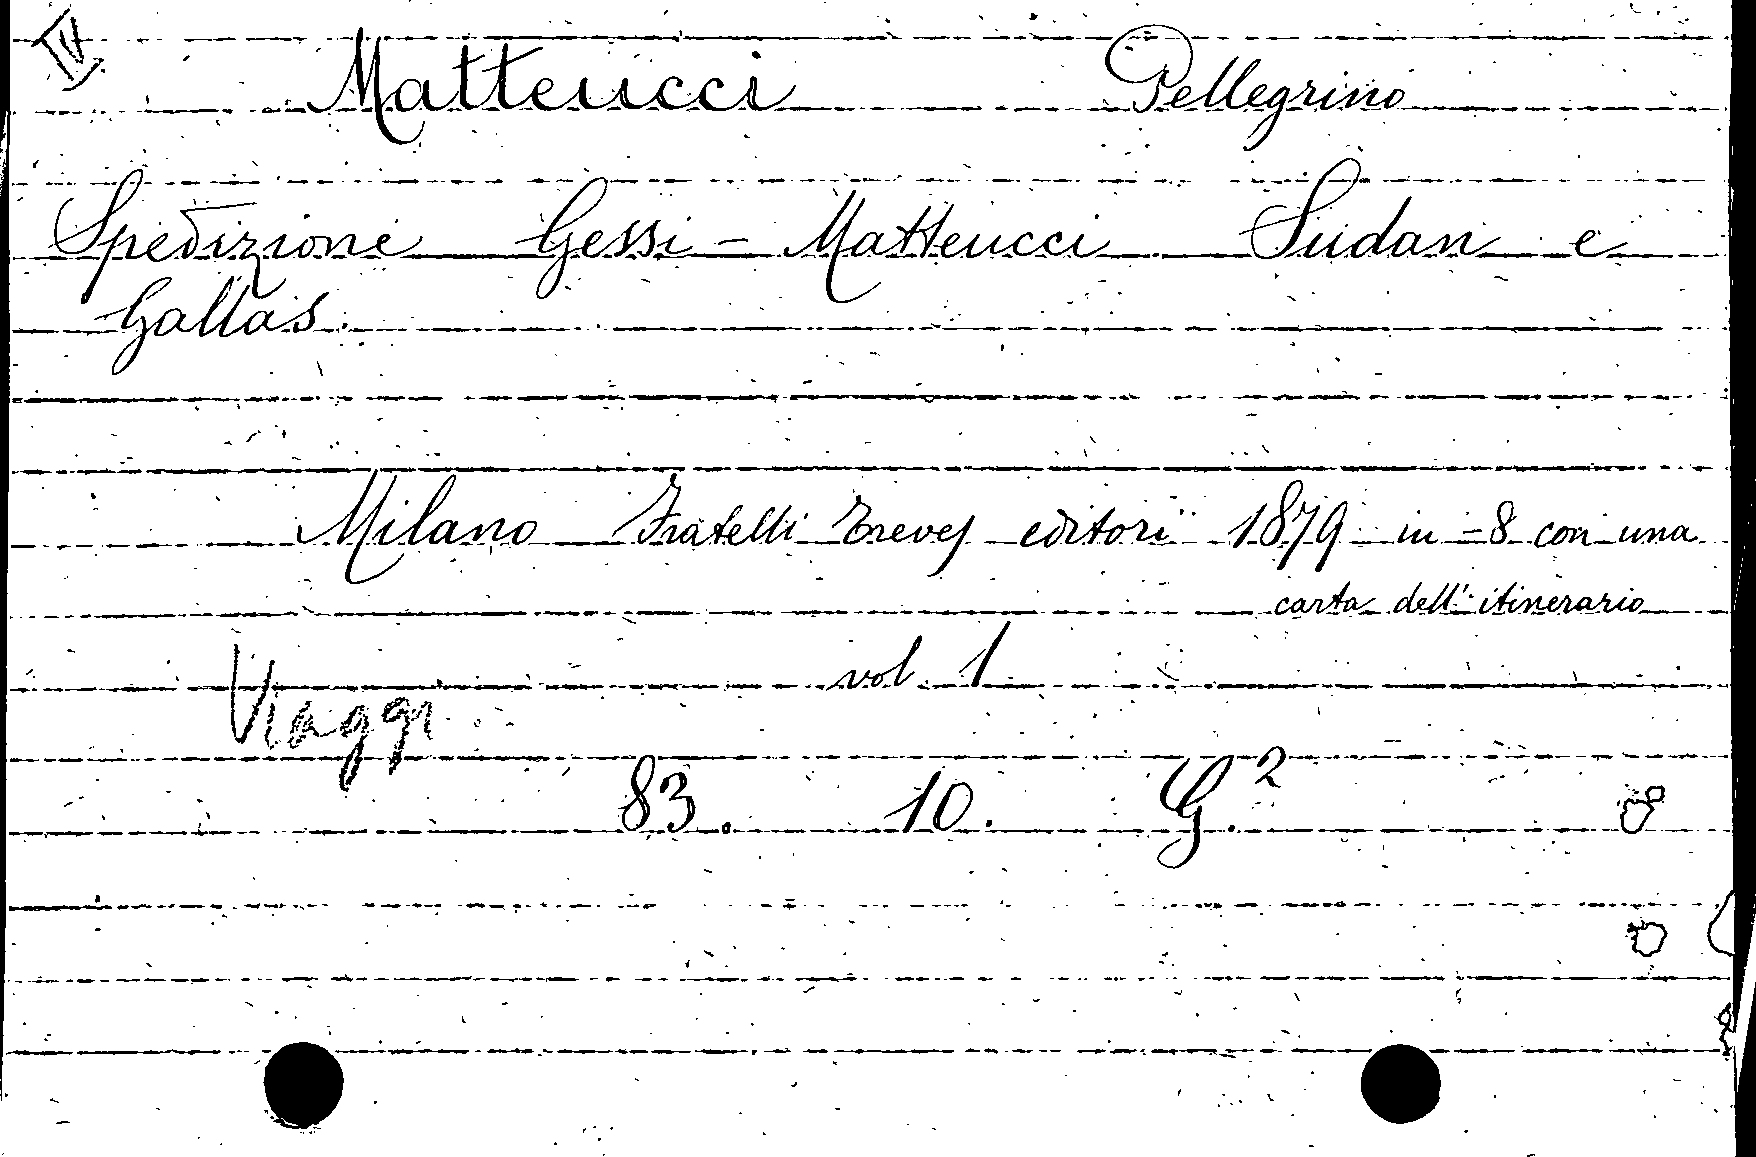 IV
Matteucci Pellegrino
Spedizione Gessi - Matteucci Sudan e
Gallas.
Milano Fratelli Treves editori 1879 in-8 con una
carta dell'itinerario
vol. 1
Viaggi
83. 10. G.²